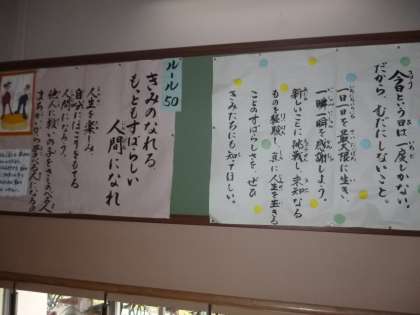 今日という日は一度しかない。
だから、むだにしないこと。
一日一日を最大限に生き、
一瞬一瞬を感謝しよう。
新しいことに挑戦し、未知なる
ものを経験し、真に人生を生きる
ことのすばらしさを、ぜひ
きみたちにも知ってほしい。
ルール50
きみのなれる
もっともすばらしい
人間になれ
人生を楽しみ、
自分にほこりをもてる
人間になろう。
他人に救いの手をさしのべる人